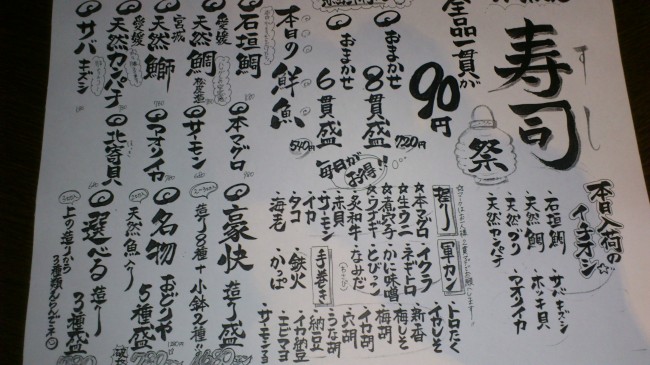 寿司
すし
祭
全品一貫が
90円
おまかせ
8貫盛
720円
おまかせ
6貫盛
540円
毎日がお得!!
本日入荷の
イチオシ
・石垣鯛
・天然鯛
・天然ブリ
・天然カンパチ
・サバキズシ
・ホッキ貝
・マオイカ
握り
☆本マグロ
☆生ウニ
☆煮穴子
☆ウナギ
・炙和牛
・赤貝
・サーモン
・イカ
・タコ
・海老
軍カン
・イクラ
・ネギトロ
・かに味噌
・とびっこ
・なみだ
手巻き
・鉄火
・かっぱ
・トロたく
・イカしそ
・新香
・梅しそ
・梅胡
・イカ胡
・穴胡
・うな胡
・納豆
・イカ納豆
・エビマヨ
・サーモンマヨ
本日の鮮魚
石垣鯛
愛媛
天然鯛
宮城
天然鰤
愛媛
天然カンパチ
サバキズシ
本マグロ
サーモン
マオイカ
北寄貝
豪快
造り盛
造り8種+小鉢2種!!
名物
おどりや
5種盛
天然魚入り
選べる
造り
3種盛
上の造りから
3種類えらんで下さい